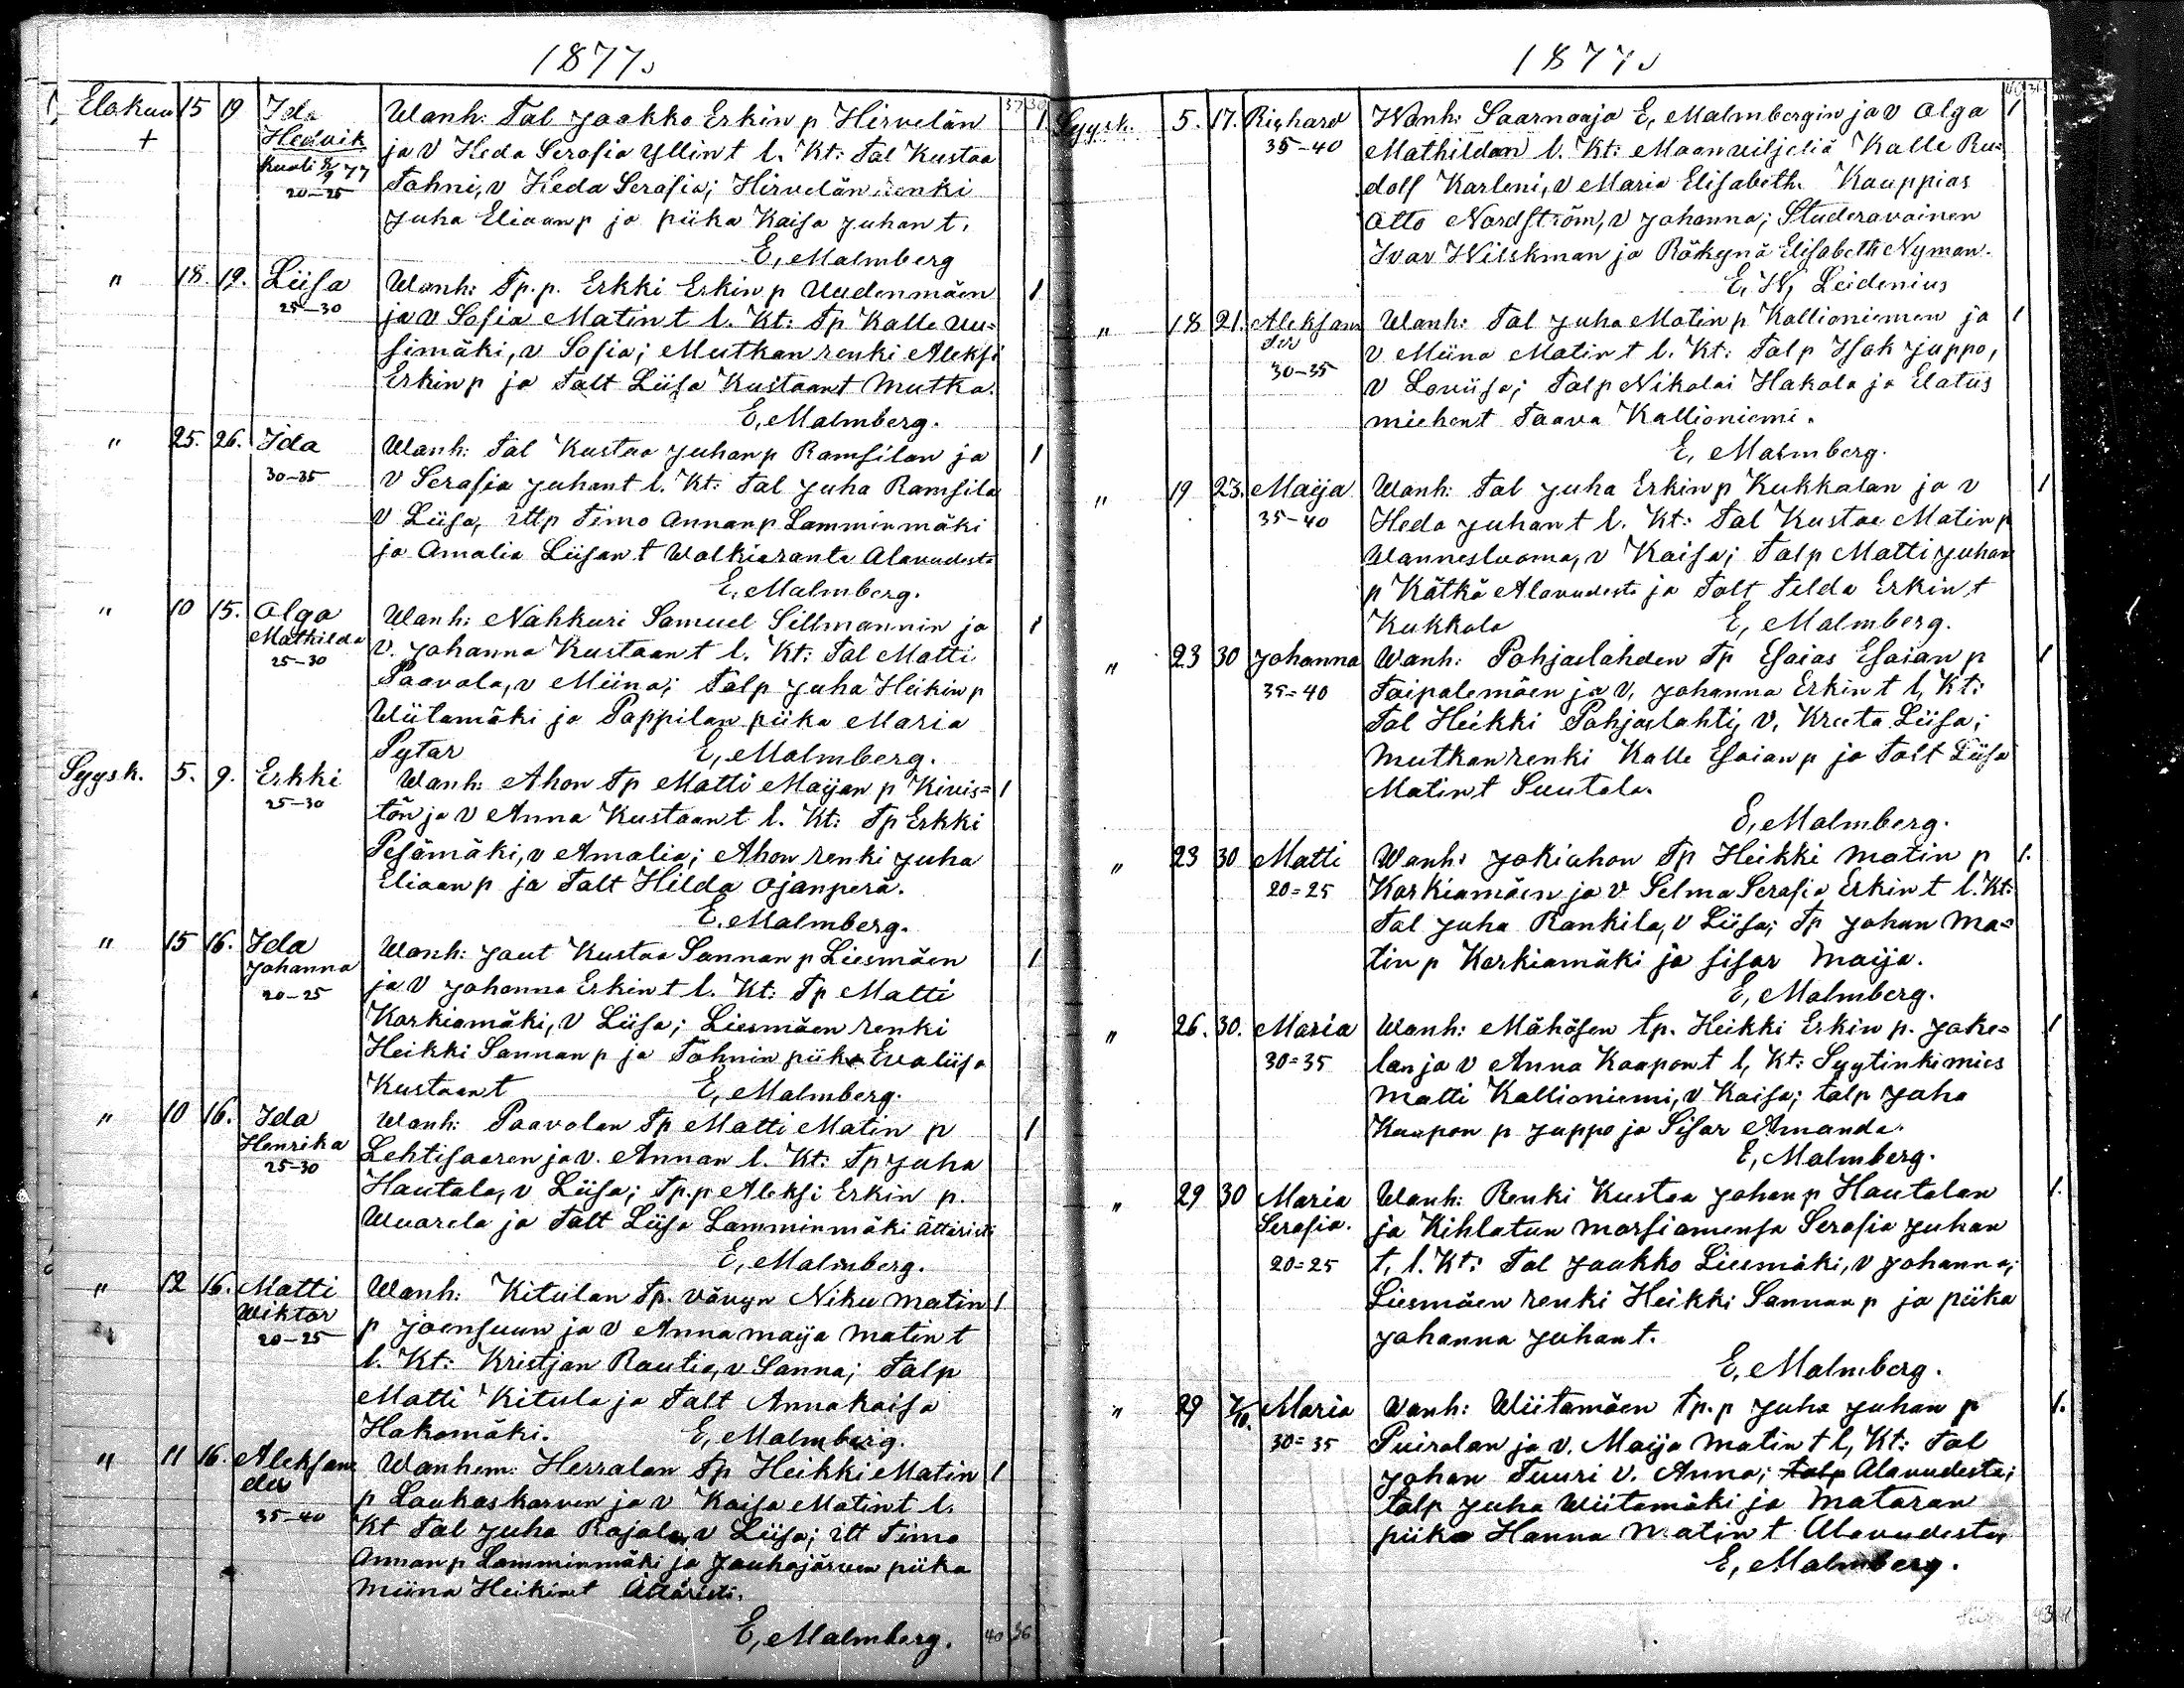 1877.
37 30
Elokuu 15 19 Ida Wanh: Tal Jaakko Erkin p Hirvelän 1
+ Hedvik ja v Heda Serafia Yllin t l. Kt: Tal Kustaa
kuoli 77 Tohni, v Heda Serafia; Hirvelän renki
20-25 Juha Eliaan p ja piika Kaisa Juhan t.
E, Malmberg
" 18. 19. Liisa Wanh: Tp. p. Erkki Erkin p Uudenmäen 1
25-30 ja v Sofia Matin t l. Kt: Tp Kalle Uu=
simäki, v Sofia; Mutkan renki Aleksi
Erkin p ja Talt Liisa Kustaant Mutka.
E, Malmberg.
" 25. 26. Ida Wanh: Tal Kustaa Juhan p Ramsilan ja 1
30-35 v Serafia Juhant l. Kt: Tal Juha Ramsila
v Liisa, ittp Timo Annan p Lamminmäki
ja Amalia Liisan t Walkiaranta Alavudesta
E, Malmberg.
" 10 15. Olga Wanh: Nahkuri Samuel Sillmannin ja 1
Mathilda v. Johanna Kustaant l. Kt: Tal Matti
25-30 Paavola, v Miina; Talp Juha Heikin p
Wiitamäki ja Pappilan piika Maria
Pytar E, Malmberg.
Syysk. 5. 9. Erkki Wanh: Ahon Tp Matti Maijan p Kivis= 1
25-30 tön ja v Anna Kustaant l. Kt: Tp Erkki
Pesämäki, v Amalia; Ahon renki Juha
Eliaan p ja Talt Hilda Ojanperä.
E. Malmberg.
" 15 16. Ida Wanh: Jaut Kustaa Sannan p Liesmäen 1
Johanna ja v Johanna Erkin t l. Kt: Tp Matti
20-25 Karkiamäki, v Liisa; Liesmäen renki
Heikki Sannan p ja Tohnin piika Evaliisa
Kustaant E, Malmberg.
" 10 16. Ida Wanh: Paavolan Tp Matti Matin p 1
Henrika Lehtisaaren ja v. Annan l. Kt: Tp Juha
25-30 Hautala, v Liisa; Tp. p Aleksi Erkin p.
Wuorela ja Talt Liisa Lamminmäki Ättäristi
E, Malmberg.
" 12 16. Matti Wanh: Kitulan Tp. vävyn Niku Matin 1
Wiktor p Joensuun ja v Annamaija Matin t
20-25 l. Kt: Kristjan Rautia, v Sanna; Talp
Matti Kitula ja Talt Annakaisa
Hakomäki. E, Malmberg.
" 11 16. Aleksan Wanhem: Herralan Tp Heikki Matin 1
der p Laukaskorven ja v Kaisa Matint l.
35-40 Kt Tal Juha Rajala, v Liisa; itt Timo
Annan p Lamminmäki ja Jouhajärven piika
Miina Heikint Ättäristi.
E, Malmberg. 40 36
1877.
40 36
Syysk. 5. 17. Richard Wanh: Saarnaaja E, Malmbergin ja v Olga 1
35-40 Mathildan l. Kt: Maanviljeliä Kalle Ru=
dolf Karleni, v Maria Elisabeth. Kauppias
Otto Nordström, v Johanna; Studeravainen
Ivar Wilskman ja Röökynä Elisabeth Nyman.
E, W, Leidenius
" 18 21. Aleksan Wanh: Tal Juha Matin p Kallioniemen ja 1
der v Miina Matin t l. Kt: Talp Isak Juppo,
30-35 v Loviisa; Talp Nikolai Hakola ja Elatus
miehent Taava Kallioniemi.
E, Malmberg.
" 19 23. Maija Wanh: Tal Juha Erkin p Kukkolan ja v 1
35-40 Heda Juhan t l. Kt: Tal Kustaa Matin p
Wannesluoma, v Kaisa; Talp Matti Juhan
p Kätkä Alavudesta ja Talt Tilda Erkin t
Kukkola E, Malmberg.
" 23 30 Johanna Wanh: Pohjaslahden Tp Esaias Esaian p 1
35=40 Taipalemäen ja v, Johanna Erkin t l, Kt:
Tal Heikki Pohjaslahti, v, Kreeta Liisa;
Mutkan renki Kalle Esaian p ja Talt Liisa
Matin t Suutala.
E, Malmberg.
" 23 30 Matti Wanh: Jokiahon Tp Heikki Matin p 1.
20=25 Karkiamäen ja v Selma Serafia Erkin t l. Kt:
Tal Juha Rankila, v Liisa; Tp Johan Ma=
tin p Karkiamäki ja sisar Maija.
E, Malmberg.
" 26. 30. Maria Wanh: Mähösen tp. Heikki Erkin p. Joke= 1
30=35 lan ja v Anna Kaapon t l, Kt: Syytinkimies
Matti Kallioniemi, v Kaisa; talp Juha
Kaapon p Juppo ja Sisar Amanda.
E, Malmberg.
" 29 30 Maria Wanh: Renki Kustaa Johan p Hautalan 1.
Serafia. ja Kihlatun morsiamensa Serafia Juhan
20=25 t, l. Kt: Tal Jaakko Liesmäki, v Johanna;
Liesmäen renki Heikki Sannan p ja piika
Johanna Juhan t.
E, Malmberg.
" 29 7/10. Maria Wanh: Wiitamäen tp. p Juha Juhan p 1.
30=35 Puiralan ja v. Maija Matin t l, Kt: Tal
Johan Tuuri v. Anna; talp Alavudesta;
talp Juha Wiitamäki ja Mataran
piika Hanna Matin t Alavudesta,
E, Malmberg.
43 41